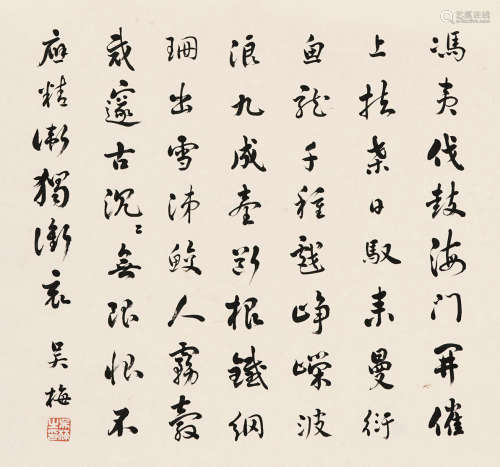 馮夷伐鼓海門開催
上扶桑日馭来曼衍
魚龍千種戲崢嶸波
浪九成臺斷根鐵網
珊出雪涕鮫人霧縠
裁邃古沉〻無限恨不
應精衛獨銜哀 吳梅